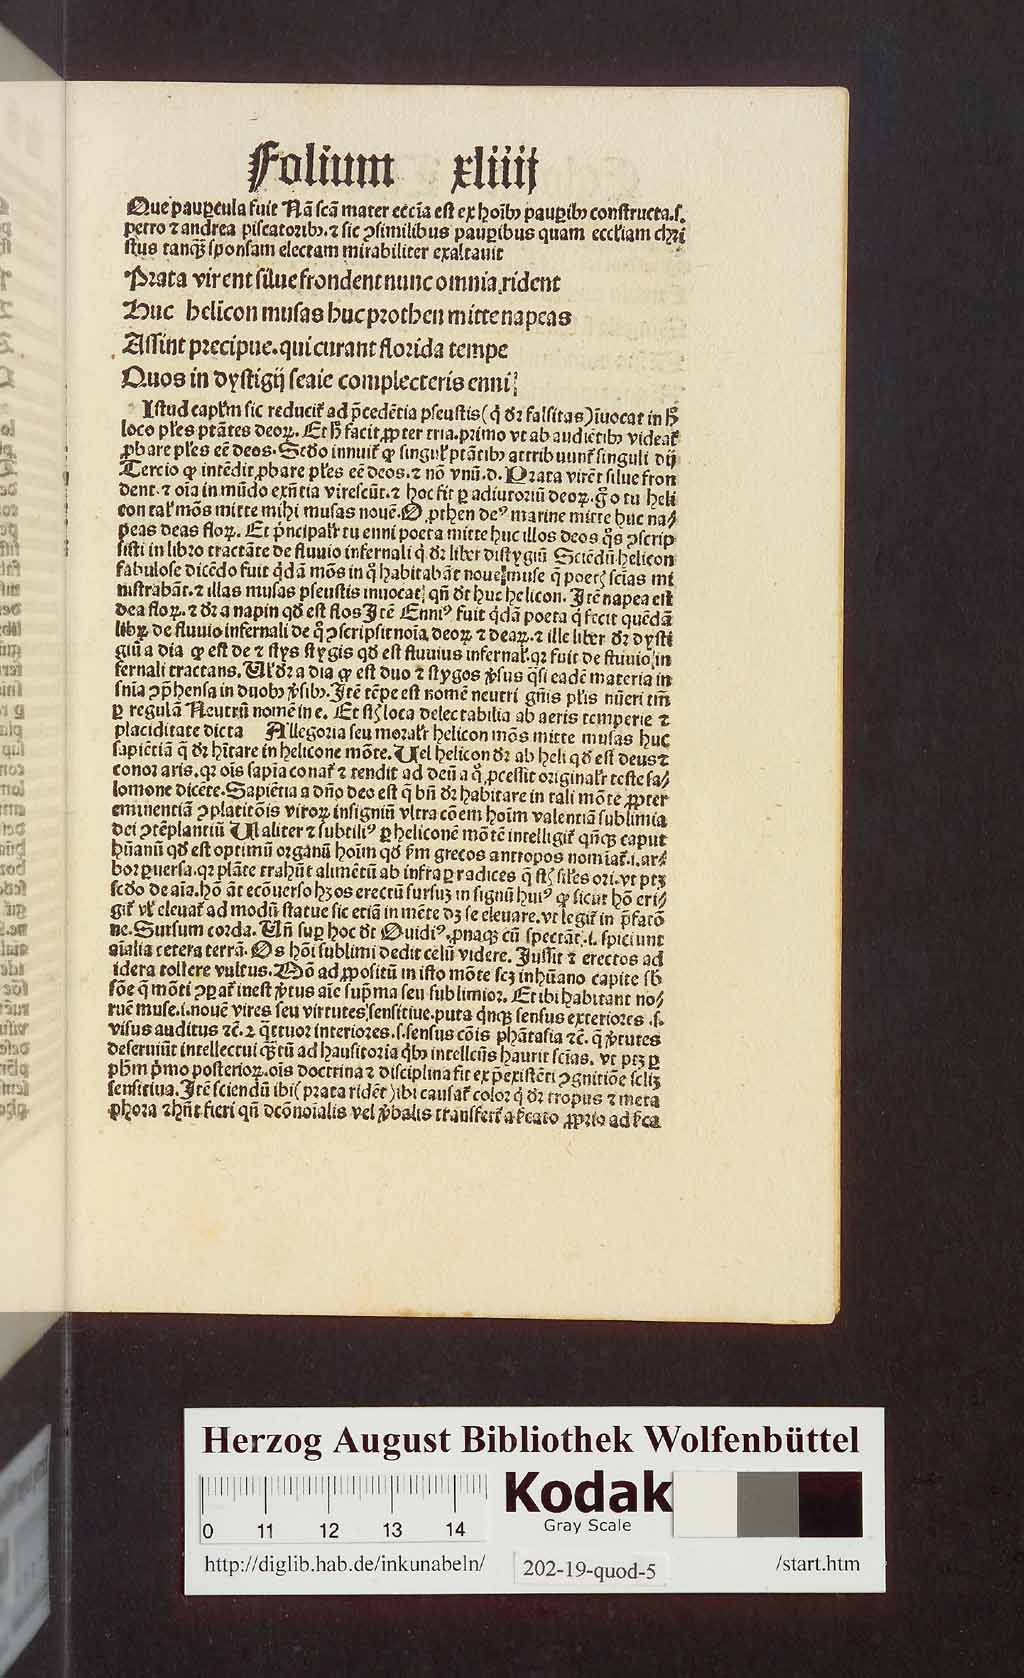 Folium xliiij
Que paupercula fuit Nā scā mater eccīa est ex hoībꝰ paupibꝰ constructa.s.
petro ⁊ andrea piscatoribꝰ. ⁊ sic ꝯsimilibus pauꝑibus quam eccl'iam chri
stus tanqꝫ sponsam electam mirabiliter exaltauit
Prata virent silue frondent nunc omnia rident
Huc helicon musas huc protheu mitte napeas
Assint precipue.qui curant florida tempe
Quos in dystigij serie complecteris enni
Istud capl'm sic reducit᷑ ad p̄cedētia pseustis (q̇ d᷑r falsitas) īuocat in h̄
loco pl'es ptātes deoꝝ. Et h̄ facit ꝓpter tria.primo vt ab audiētibꝰ videat᷑
ꝓbare pl'es eē deos. Scd̄o innuit ꝙ singul' ptātibꝰ attribuunt᷑ singuli dij
Tercio ꝙ intēdit ꝓbare pl'es eē deos.⁊ nō vnū.d. Prata virēt silue fron
dent.⁊ oīa in mūdo exn̄tia virescūt.⁊ hoc fit ꝑ adiutoriū deoꝝ. g̊ o tu heli
con tal' mōs mitte mihi musas nouē. O ꝓthen deꝰ marine mitte huc na/
peas deas floꝝ. Et p̄ncipalr̄ tu enni poeta mitte huc illos deos q̊s ꝯscrip
sisti in libro tractāte de fluuio infernali q̇ d᷑r liber distygiū Sciēdū helicon
fabulose dicēdo fuit q̇dā mōs in q̊ habitabāt noue muse q̄ poetꝭ scīas mi
nistrabāt.⁊ illas musas pseustis inuocat qn̄ d̄t huc helicon. Itē napea est
dea floꝝ.⁊ d᷑r a napin qd̄ est flos Itē Enniꝰ fuit q̇dā poeta q̇ fecit quēdā
libꝝ de fluuio infernali de q̊ ꝯscripsit noīa deoꝝ ⁊ deaꝝ.⁊ ille liber d᷑r dysti
giū a dia ꝙ est de ⁊ stys stygis qd̄ est fluuius infernal'.qꝛ fuit de fluuio in
fernali tractans. Ul' d᷑r a dia ꝙ est duo ⁊ stygos v̓sus q̄si eadē materia in
snīa ꝯp̄hensa in duobꝰ v̓sibꝰ. Itē tēpe est nomē neutri gn̄is pl'is nūeri tm̄
ꝑ regulā Neutrū nomē in e. Et sꝭ loca delectabilia ab aeris temperie ⁊
placiditate dicta Allegoria seu moralr̄ helicon mōs mitte musas huc
sapiētiā q̄ d᷑r hītare in helicone mōte. Uel helicon d᷑r ab heli qd̄ est deus ⁊
conor aris.qꝛ oīs sapīa conat᷑ ⁊ tendit ad deū a q̊ ꝓcessit originalr̄ teste sa/
lomone dicēte. Sapiētia a dn̄o deo est q̄ bn̄ d᷑r habitare in tali mōte ꝓpter
eminentiā ꝯplatitōis viroꝝ insigniū vltra cōem hoīm valentiā sublimia
dei ꝯtēplantiū Ul' aliter ⁊ subtiliꝰ ꝑ heliconē mōtē intelligit᷑ qn̄qꝫ caput
hūanū qd̄ est optimū organū hoīm qd̄ fm̄ grecos antropos nomīat᷑.i.ar/
bor ꝑuersa.qꝛ plāte trahūt alimētū ab infra ꝑ radices q̄ sꝭ sil'es ori.vt ptꝫ
scd̄o de aīa. hō āt ecōuerso hꝫ os erectū sursū in signū huiꝰ ꝙ sicut hō eri/
git᷑ vl' eleuat᷑ ad modū statue sic etiā in mēte dꝫ se eleuare.vt legit᷑ in p̄fatō
ne. Sursum corda. Un̄ suꝑ hoc d̄t Ouidiꝰ. ꝓnaqꝫ cū spectāt.i.spiciunt
aīalia cetera terrā. Os hōi sublimi dedit celū videre. Jussit ⁊ erectos ad
idera tollere vultus. Mō ad ꝓpositū in isto mōte scꝫ in hūano capite sb̄
sōe q̄ mōti ꝯꝑat᷑ inest v̓tus aīe sup̄ma seu sublimior. Et ibi habitant no/
ruē muse.i.nouē vires seu virtutes sensitiue.puta q̇nqꝫ sensus exteriores .s.
visus auditus ⁊c̄.⁊ q̄ttuor interiores.s.sensus cōis phātasia ⁊c̄. q̄ v̓tutes
deseruiūt intellectui qꝫtū ad hausitoria q̇bꝰ intellcūs haurit scīas. vt ptꝫ ꝑ
ph̄m p̓mo posterioꝝ.oīs doctrina ⁊ disciplina fit ex p̄existēti ꝯgnitiōe sclꝫ
sensitiua. Itē sciendū ibi( prata ridēt )ibi causat᷑ color q̇ d᷑r tropus ⁊ meta
phora ⁊ hn̄t fieri qn̄ dcō noīalis vel v̓balis transfert᷑ a fcato ꝓprio ad fca
Herzog August Bibliothek Wolfenbüttel
Kodak
Gray Scale
0 11 12 13 14
http://diglib.hab.de/inkunabeln/ 202-19-quod-5 /start.htm